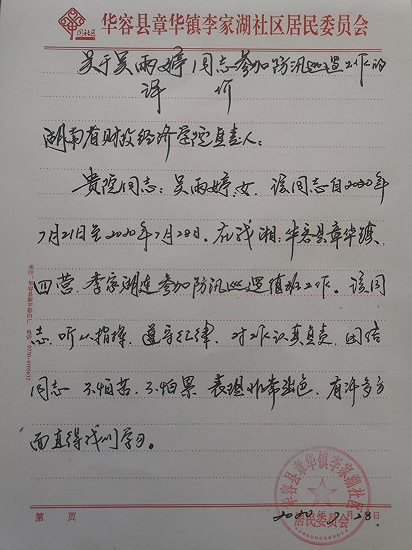 华容县章华镇李家湖社区居民委员会
关于吴雨婷同志参加防汛巡逻工作的
评价
湖南省财政经济学院负责人:
贵院同志:吴雨婷,女,该同志自2020年
7月21日至2020年7月28日。在我湘,华容县章华镇,
四营,李家湖连参加防汛巡逻值班工作。该同
志,听从指挥,遵守纪律,对工作认真负责,团结
同志,不怕苦,不怕累,表现非常出色,有许多方
面直得我们学习。
华容县章华镇李家湖社区
居民委员会
2020 7月28日
第 页